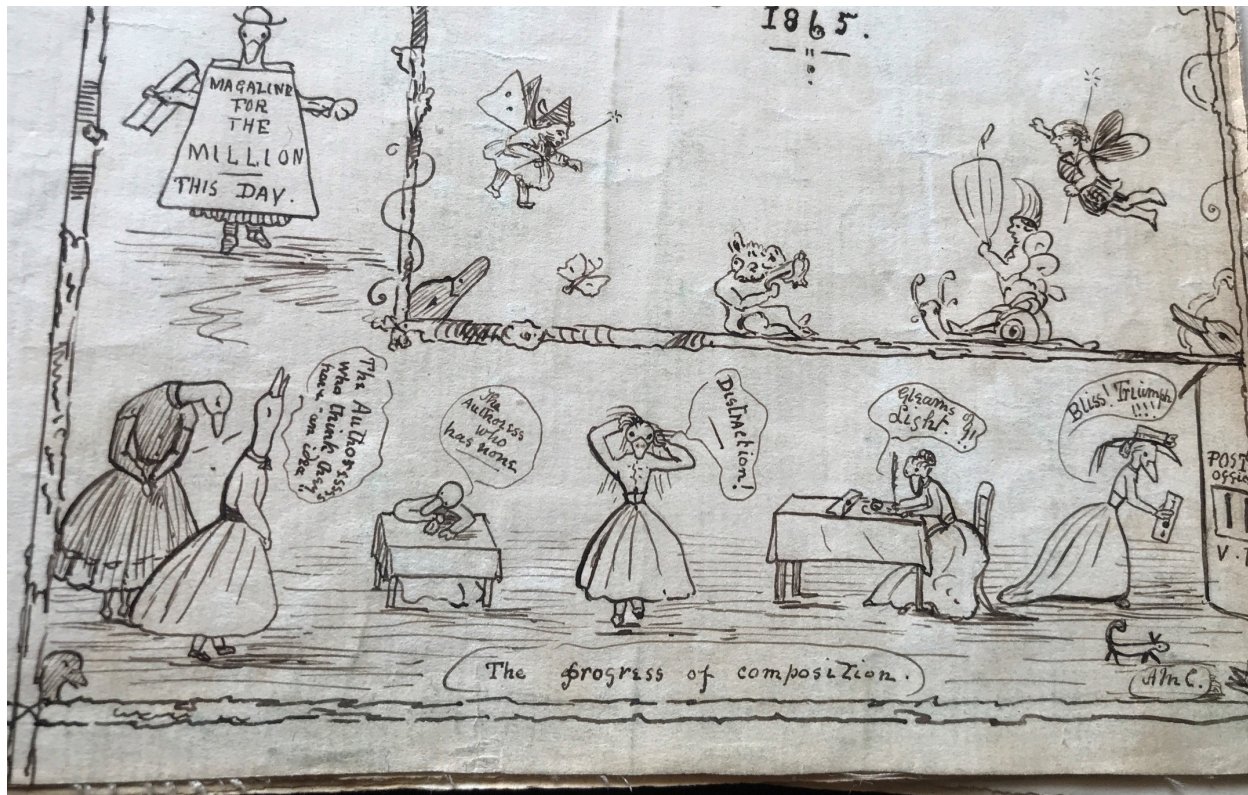 1865.
MAGAZINE
FOR
THE
MILLION
THIS DAY.
The Authoress
who think they
have - an idea!
The
Authoress
who
has none
Distraction!
Gleams of
Light. !!
Bliss! Triumph
!!!!
POST
OFFIC
V.
The progress of composition.
AMC.